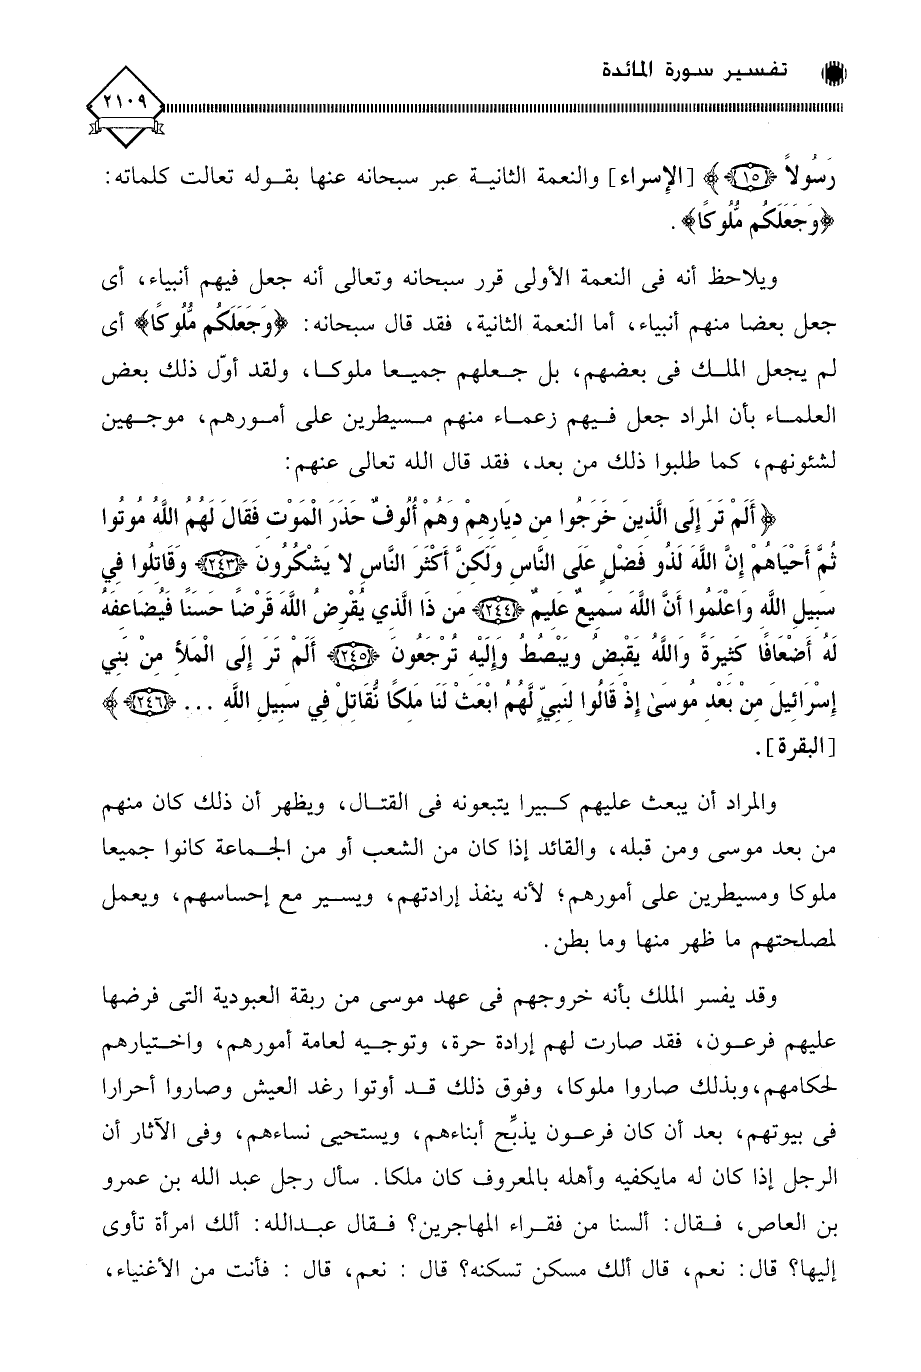 تفسير سورة المائدة
٢١٠٩
رَسُولاً ﴿١٥﴾ ﴾ [الإسراء] والنعمة الثانية عبر سبحانه عنها بقوله تعالت كلماته:
﴿وَجَعَلَكُم مُّلُوكًا﴾ .
ويلاحظ أنه فى النعمة الأولى قرر سبحانه وتعالى أنه جعل فيهم أنبياء، أى
جعل بعضا منهم أنبياء، أما النعمة الثانية، فقد قال سبحانه: ﴿وَجَعَلَكُم مُّلُوكًا﴾ أى
لم يجعل الملك فى بعضهم، بل جعلهم جميعا ملوكا، ولقد أوّل ذلك بعض
العلماء بأن المراد جعل فيهم زعماء منهم مسيطرين على أمورهم، موجهين
لشئونهم، كما طلبوا ذلك من بعد، فقد قال الله تعالى عنهم:
﴿ أَلَمْ تَرَ إِلَى الَّذِينَ خَرَجُوا مِن دِيَارِهِمْ وَهُمْ أُلُوفٌ حَذَرَ الْمَوْتِ فَقَالَ لَهُمُ اللَّهُ مُوتُوا
ثُمَّ أَحْيَاهُمْ إِنَّ اللَّهَ لَذُو فَضْلٍ عَلَى النَّاسِ وَلَكِنَّ أَكْثَرَ النَّاسِ لا يَشْكُرُونَ ﴿٢٤٣﴾ وَقَاتِلُوا فِي
سَبِيلِ اللَّهِ وَاعْلَمُوا أَنَّ اللَّهَ سَمِيعٌ عَلِيمٌ ﴿٢٤٤﴾ مَن ذَا الَّذِي يُقْرِضُ اللَّهَ قَرْضًا حَسَنًا فَيُضَاعِفَهُ
لَهُ أَضْعَافًا كَثِيرَةً وَاللَّهُ يَقْبِضُ وَيَبْصُطُ وَإِلَيْهِ تُرْجَعُونَ ﴿٢٤٥﴾ أَلَمْ تَرَ إِلَى الْمَلأِ مِنْ بَنِي
إِسْرَائِيلَ مِنْ بَعْدِ مُوسَىٰ إِذْ قَالُوا لِنَبِيٍّ لَّهُمُ ابْعَثْ لَنَا مَلِكًا نُّقَاتِلْ فِي سَبِيلِ اللَّهِ ... ﴿٢٤٦﴾ ﴾
[البقرة] .
والمراد أن يبعث عليهم كبيرا يتبعونه فى القتال، ويظهر أن ذلك كان منهم
من بعد موسى ومن قبله، والقائد إذا كان من الشعب أو من الجماعة كانوا جميعا
ملوكا ومسيطرين على أمورهم؛ لأنه ينفذ إرادتهم، ويسير مع إحساسهم، ويعمل
لمصلحتهم ما ظهر منها وما بطن.
وقد يفسر الملك بأنه خروجهم فى عهد موسى من ربقة العبودية التى فرضها
عليهم فرعون، فقد صارت لهم إرادة حرة، وتوجيه لعامة أمورهم، واختيارهم
لحكامهم،وبذلك صاروا ملوكا، وفوق ذلك قد أوتوا رغد العيش وصاروا أحرارا
فى بيوتهم، بعد أن كان فرعون يذبِّح أبناءهم، ويستحيى نساءهم، وفى الآثار أن
الرجل إذا كان له مايكفيه وأهله بالمعروف كان ملكا. سأل رجل عبد الله بن عمرو
بن العاص، فقال: ألسنا من فقراء المهاجرين؟ فقال عبدالله: ألك امرأة تأوى
إليها؟ قال: نعم، قال ألك مسكن تسكنه؟ قال : نعم، قال : فأنت من الأغنياء،